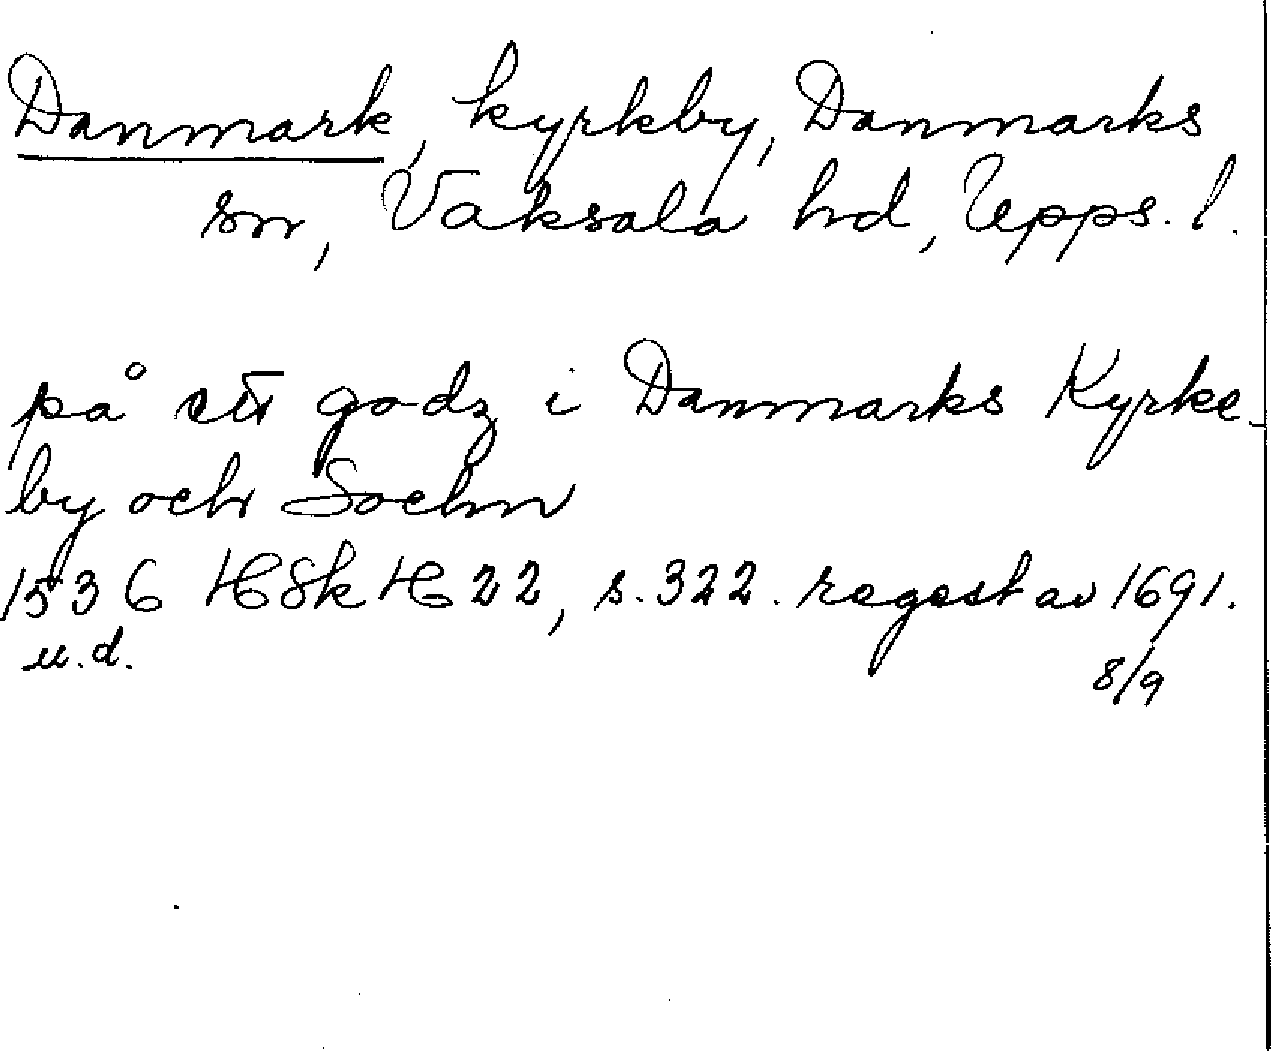 Danmark, kyrkby, Danmarks
sn, Vaksala hd, Upps. l.
på ett godz i Danmarks Kyrke-
by och Sochn
1536 HSk H 22, s. 322. regest av 1691.
u.d.
8/9